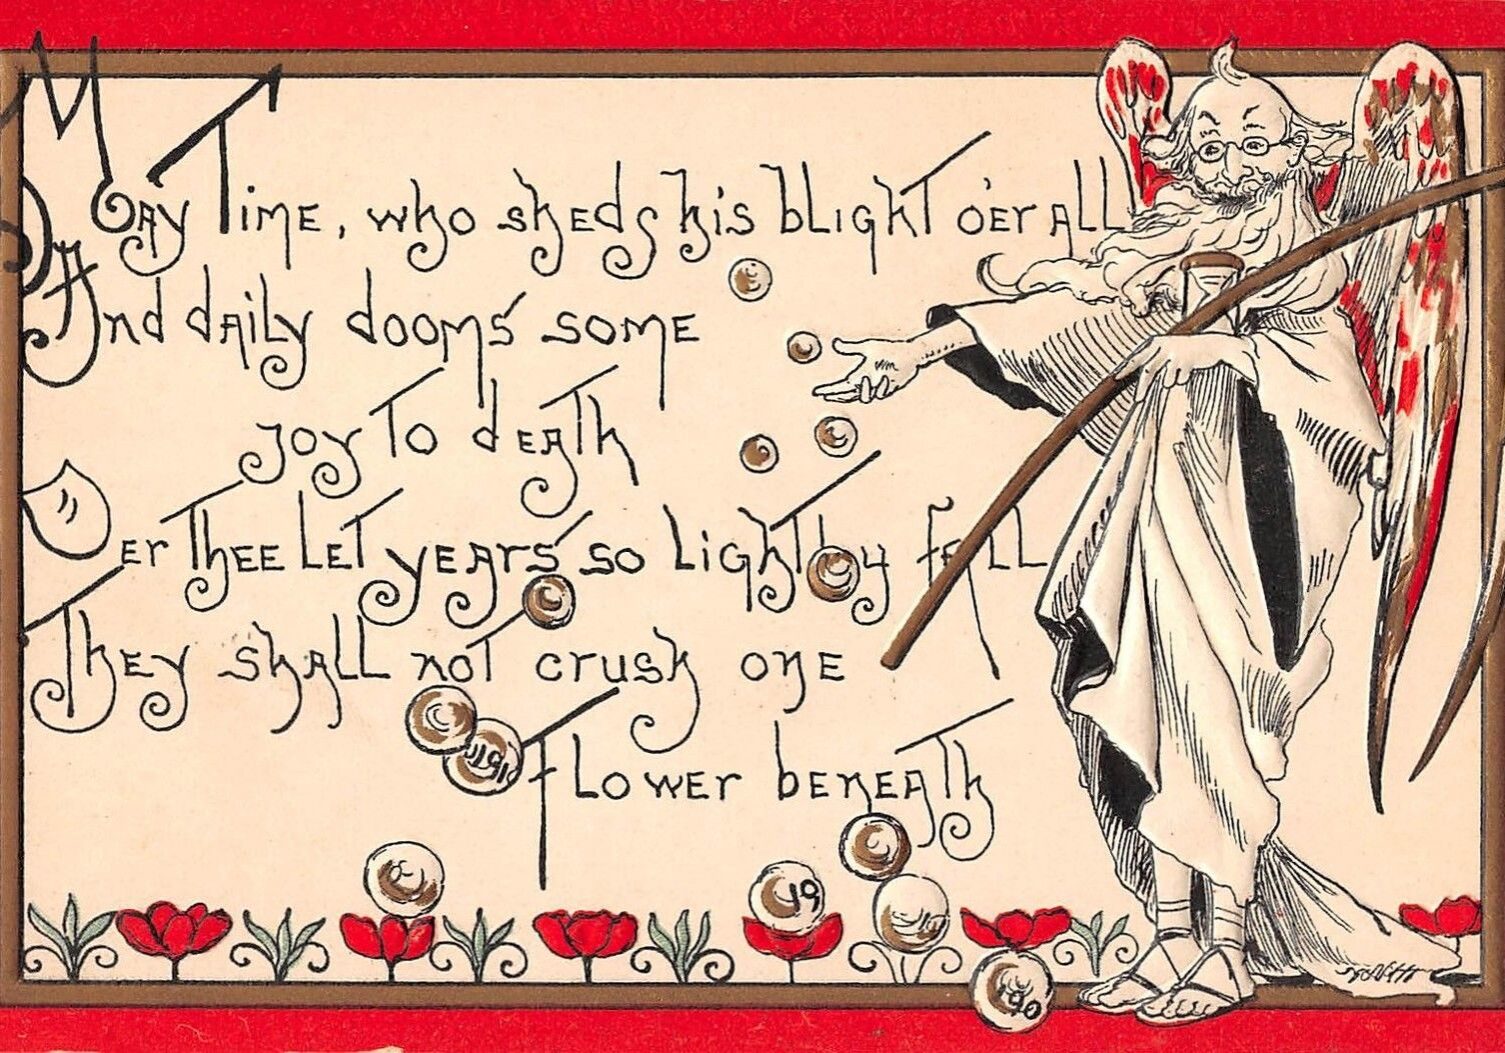 May Time, who sheds his blight o'er all
And daily dooms some
joy to death
Oer thee let years so lightly fall
They shall not crush one
flower beneath
1910
19
90